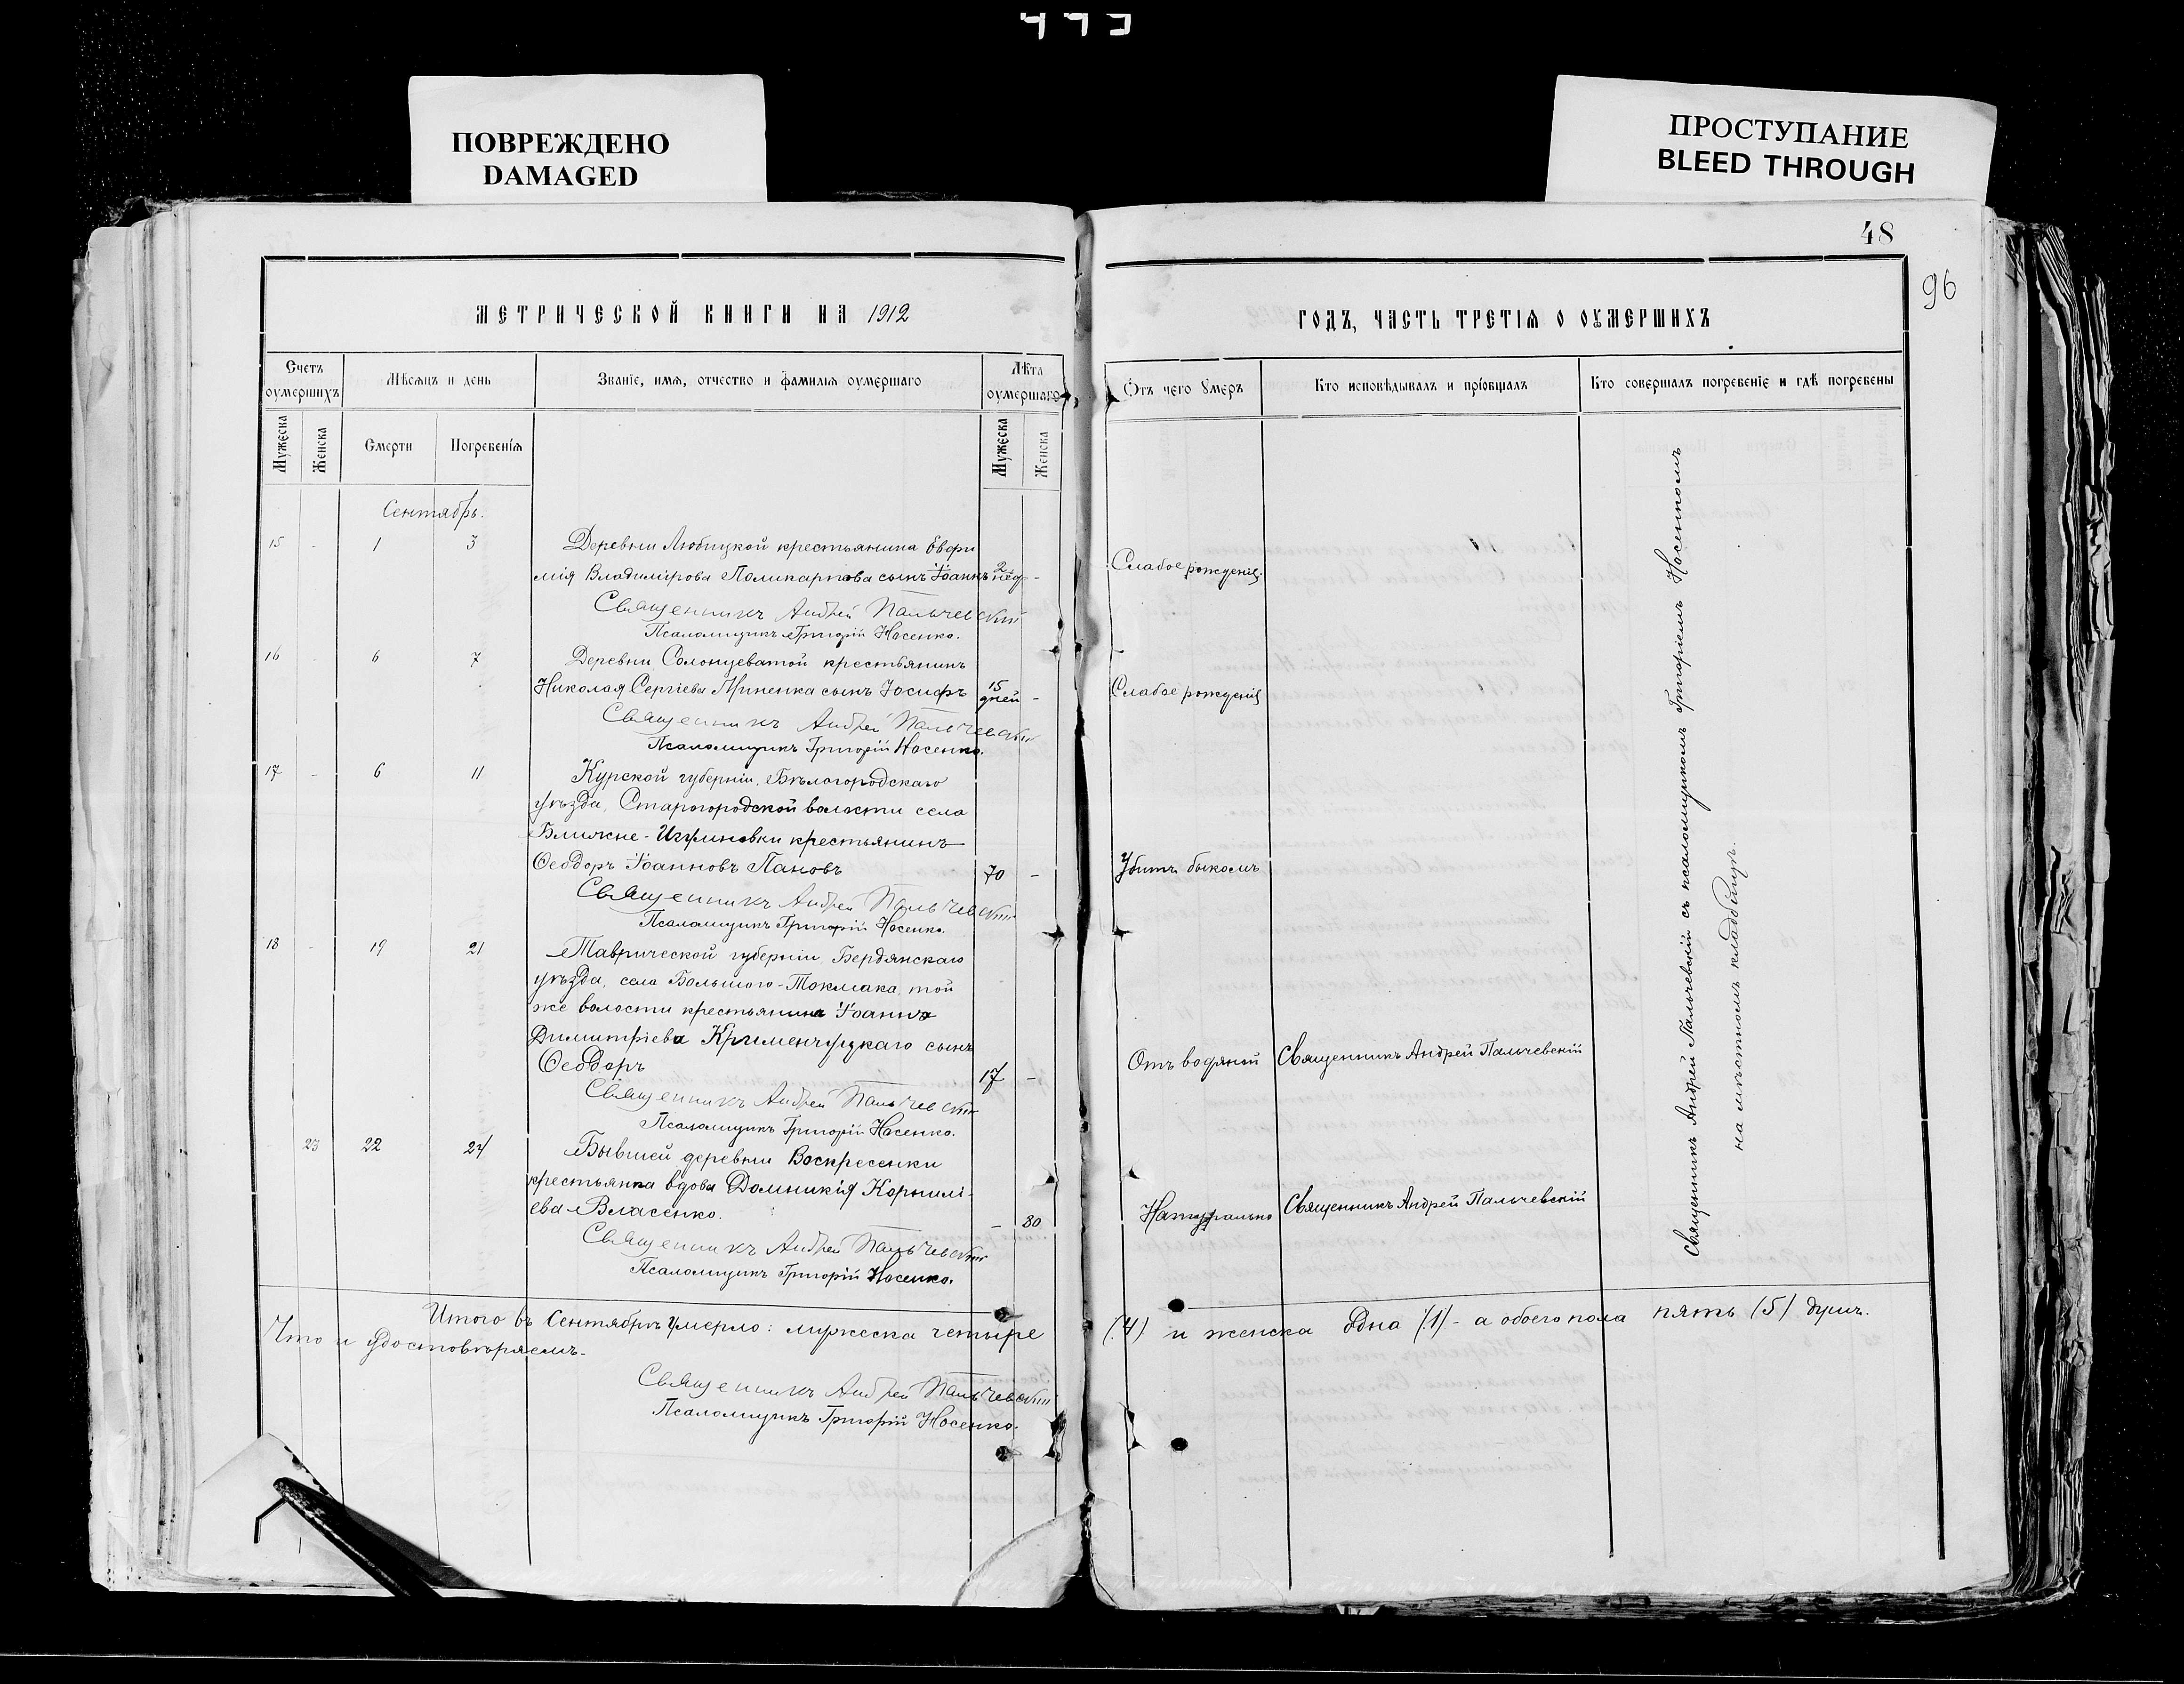 ПОВРЕЖДЕНО
DAMAGED
ПРОСТУПАНИЕ
BLEED THROUGH
48
96
МЕТРИЧЕСКОЙ КНИГИ НА 1912
ГОДЪ, ЧАСТЬ ТРЕТІѦ О ОУМЕРШИХЪ
Счетъ оумершихъ
Мѣсяцъ и день
Званіе, имя, отчество и фамилія оумершаго
Лѣта оумершаго
Отъ чего умеръ
Кто исповѣдывалъ и пріобщалъ
Кто совершалъ погребеніе и гдѣ погребены
Мужеска
Женска
Смерти
Погребенія
Мужеска
Женска
Сентябрь.
15 - 1 3 Деревни Любицкой крестьянина Евфи
мія Владимірова Поликарпова сынъ Іоаннъ 2 нед. - Слабое рожденіе.
Священникъ Андрей Пальчевскій
Псаломщикъ Григорій Носенко.
16 - 6 7 Деревни Солонцеватой крестьянинъ
Николая Сергіева Миненка сынъ Іосифъ 15 дней - Слабое рожденіе
Священникъ Андрей Пальчевскій
Псаломщикъ Григорій Носенко.
17 - 6 11 Курской губерніи, Бѣлогородскаго
уѣзда, Старогородской волости села
Ближне-Игуменовки крестьянинъ
Ѳеодоръ Іоанновъ Пановъ 70 - Убитъ быкомъ
Священникъ Андрей Пальчевскій
Псаломщикъ Григорій Носенко.
18 - 19 21 Таврической губерніи, Бердянскаго
уѣзда, села Большого-Токмака, той
же волости крестьянина Іоанна
Димитріева Кременчуцкаго сынъ
Ѳеодоръ 17 - Отъ водяной Священникъ Андрей Пальчевскій
Священникъ Андрей Пальчевскій
Псаломщикъ Григорій Носенко.
23 22 24 Бывшей деревни Воскресенки
крестьянка вдова Домникія Корнилі-
ева Власенко. - 80 Натурально Священникъ Андрей Пальчевскій
Священникъ Андрей Пальчевскій
Псаломщикъ Григорій Носенко.
Священникъ Андрей Пальчевскій съ псаломщикомъ Григоріемъ Носенкомъ
на мѣстномъ кладбищѣ.
Итого въ Сентябрѣ умерло: мужеска четыре (4) и женска одна (1) - а обоего пола пять (5) душъ.
Что и удостовѣряемъ.
Священникъ Андрей Пальчевскій
Псаломщикъ Григорій Носенко.